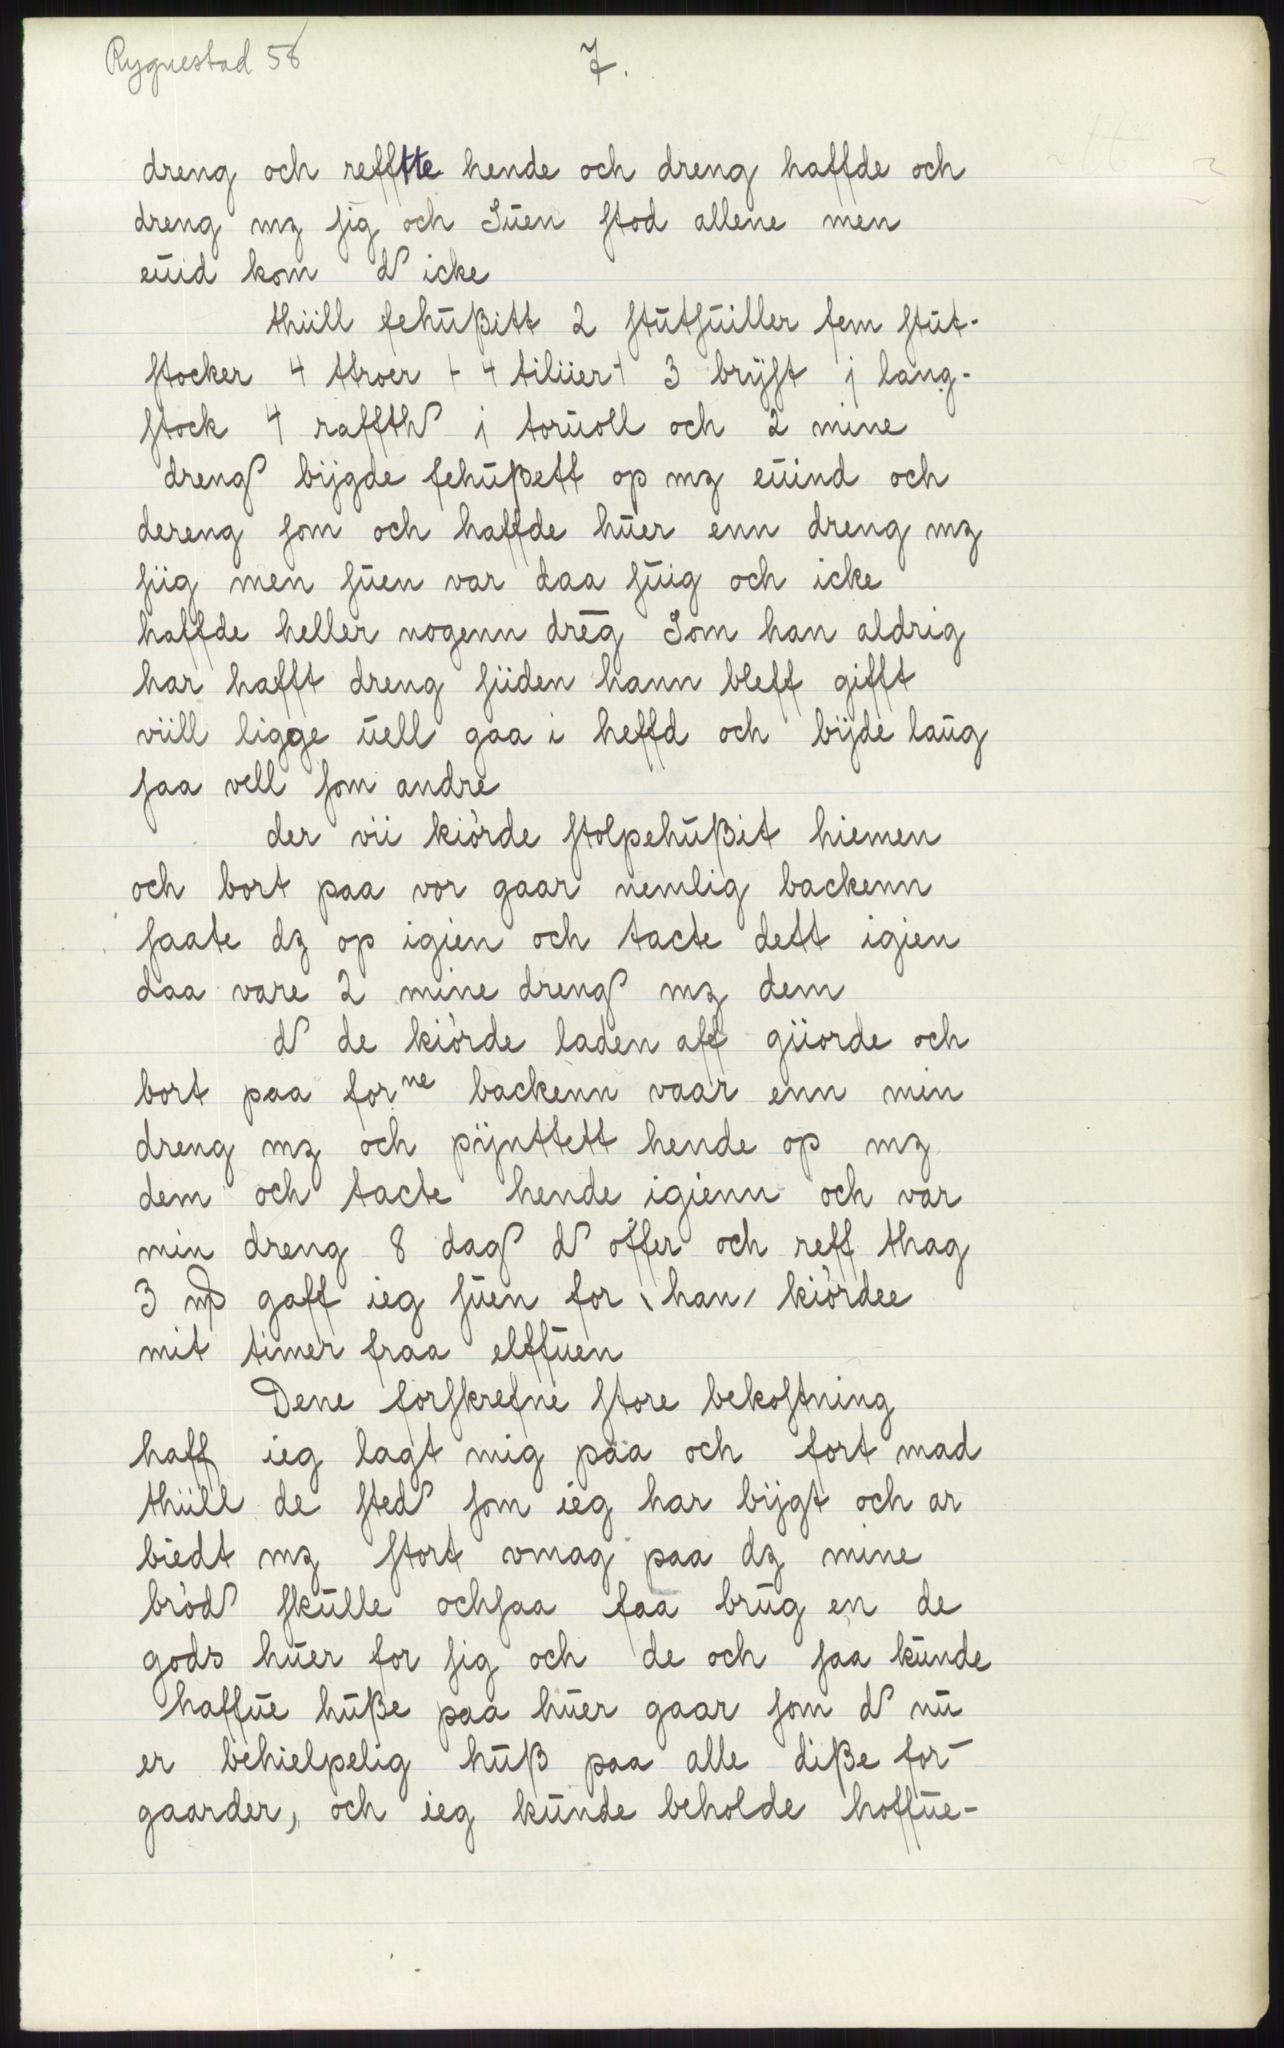 Rygnestad 58
7.
dreng och refftte hende och dreng haffde och
dreng mz sig och Suen stod allene men
euid kom d icke
thiill fehußitt 2 stutsuiller fem stut-
stocker 4 ttroer + 4 tiliier + 3 brÿst j lang-
stock 4 raffth j toruoll och 2 mine
dreng bijgde fehußett op mz euind och
dereng som och haffde huer enn dreng mz
siig men suen var daa suig och icke
haffde heller nogenn drēg Som han aldrig
har hafft dreng siiden hann bleff gifft
viill ligge uell gaa i heffd och bijde laug
saa vell som andre
der vii kiòrde stolpehußit hiemen
och bort paa vor gaar nemlig backenn
saate dz op igien och tacte dett igien
daa vare 2 mine dreng mz dem
d de kiòrde laden aff giiorde och
bort paa forne backenn vaar enn min
dreng mz och pijnttett hende op mz
dem och tacte hende igienn och var
min dreng 8 dag d offer och reff thag
3 gaff ieg suen for \ han / kiòrdee
mit timer fraa elffuen
Dene forskrefne store bekostning
haff ieg lagt mig paa och fort mad
thiill de sted som ieg har bijgt och ar
biedt mz stort vmag paa dz mine
bròd skulle ochsaa faa brug en de
gods huer for sig och de och saa kunde
haffue huße paa huer gaar som d nu
er behielpelig huß paa alle diße for-
gaarder, och ieg kunde beholde hoffue-